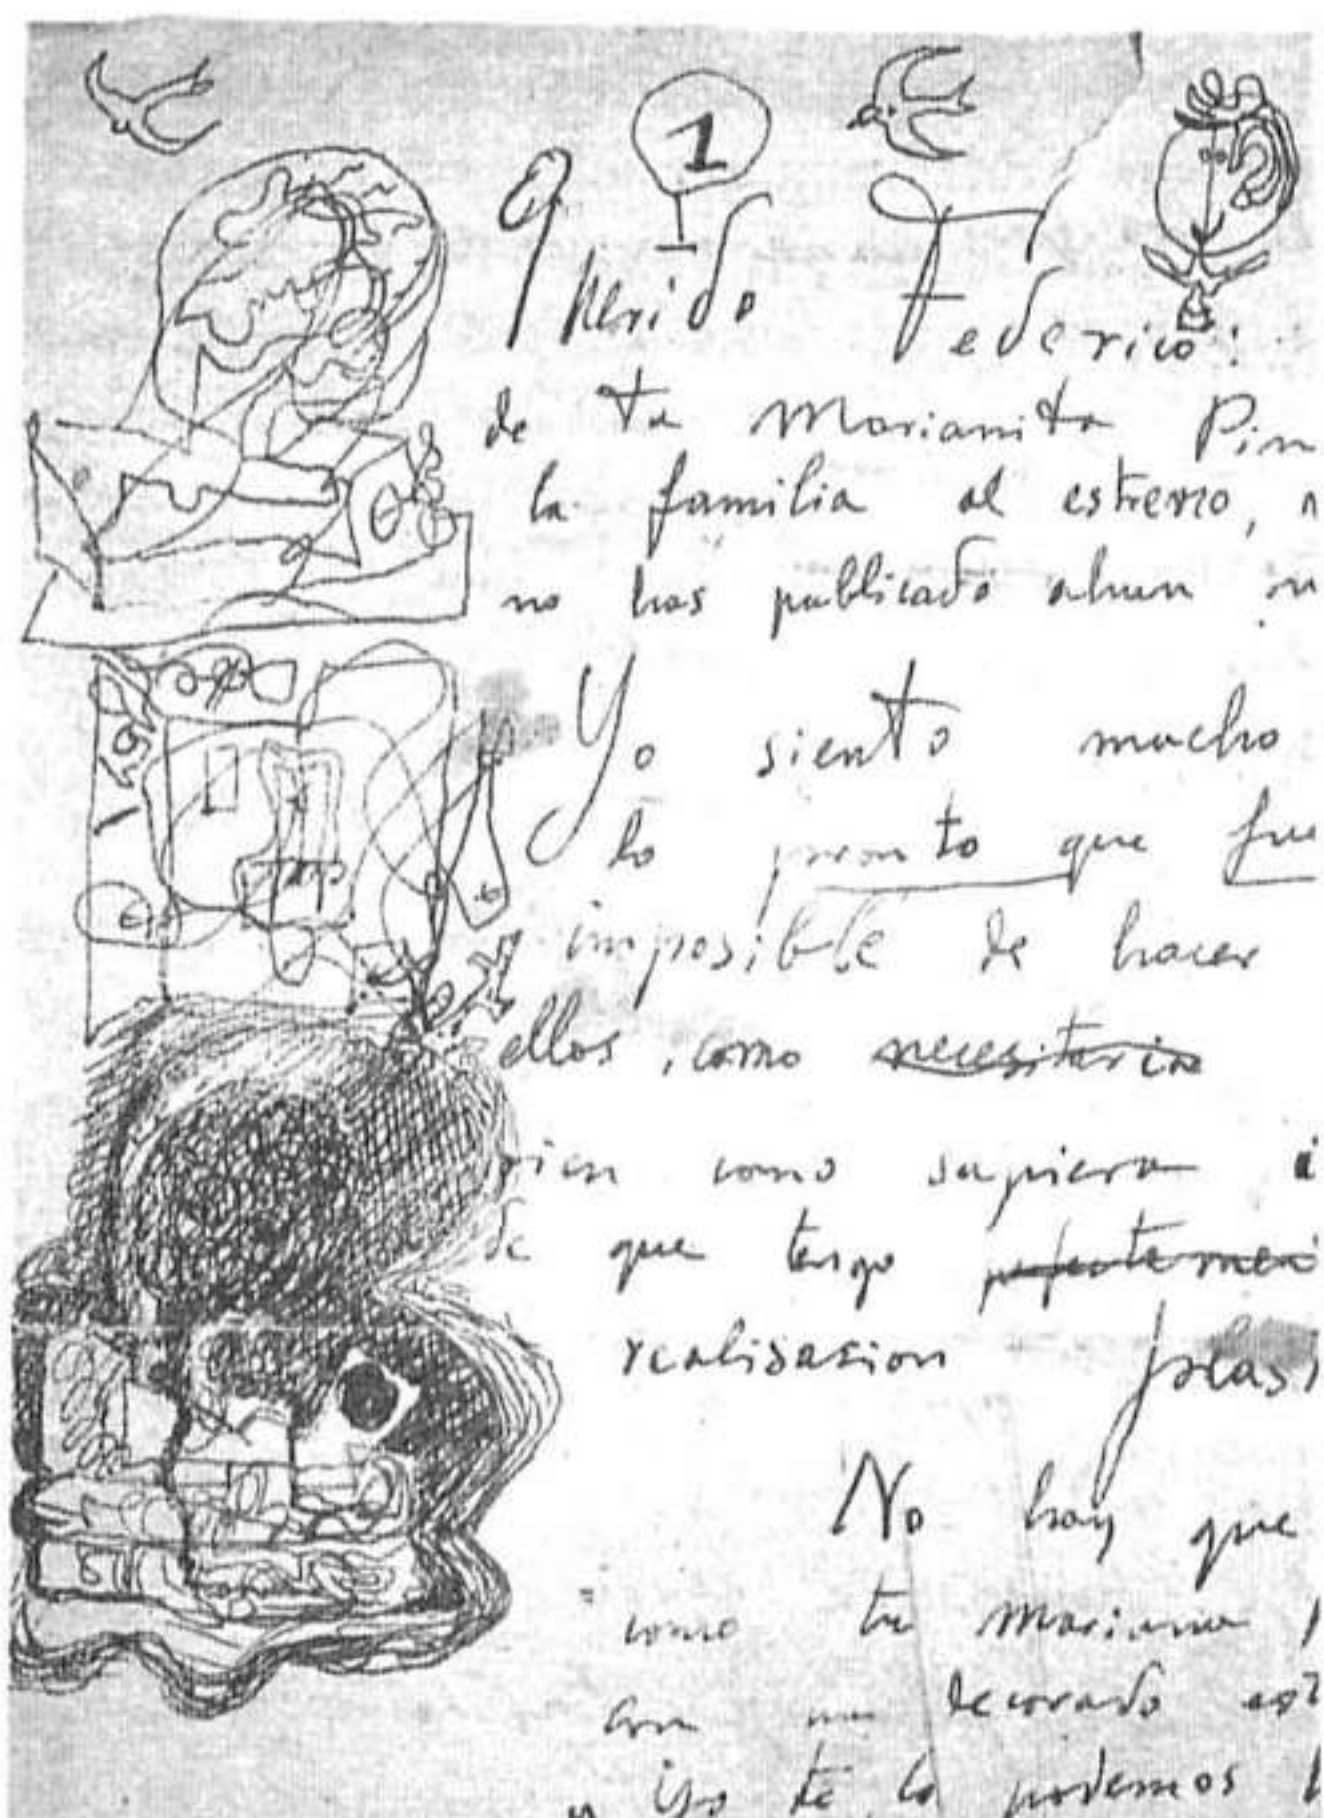 1
Querido Federico:
de tu Marianita Pin
la familia al estreno, n
no has publicado ahun
Yo siento mucho
lo pronto que fue
imposible de hacer
ellos, como necesitaria
rien como supiera i
de que tengo
realisasion plas
No hay que
como tu Mariana
con un decorado est
y yo te la podemos